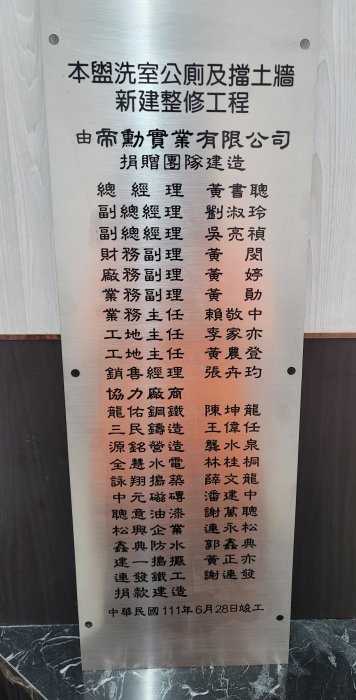 本盥洗室公廁及擋土牆
新建整修工程
由帝勳實業有限公司
捐贈團隊建造
總經理 黃書聰
副總經理 劉淑玲
副總經理 吳亮禎
財務副理 黃閔
廠務副理 黃婷
業務副理 黃勛
業務主任 賴敬中
工地主任 李家亦
工地主任 黃農登
銷售經理 張卉玓
協力廠商
龍佑鋼鐵 陳坤龍
三民鑄造 王偉任
源銘營造 龔水泉
全慧水電 林桂桐
詠翔搗築 薛文龍
中元磁磚 潘建中
聰意油漆 謝萬聰
松興企業 連永松
鑫典防水 郭鑫典
建一搗擺 黃正亦
連發鐵工 謝連發
捐款建造
中華民國111年6月28日竣工